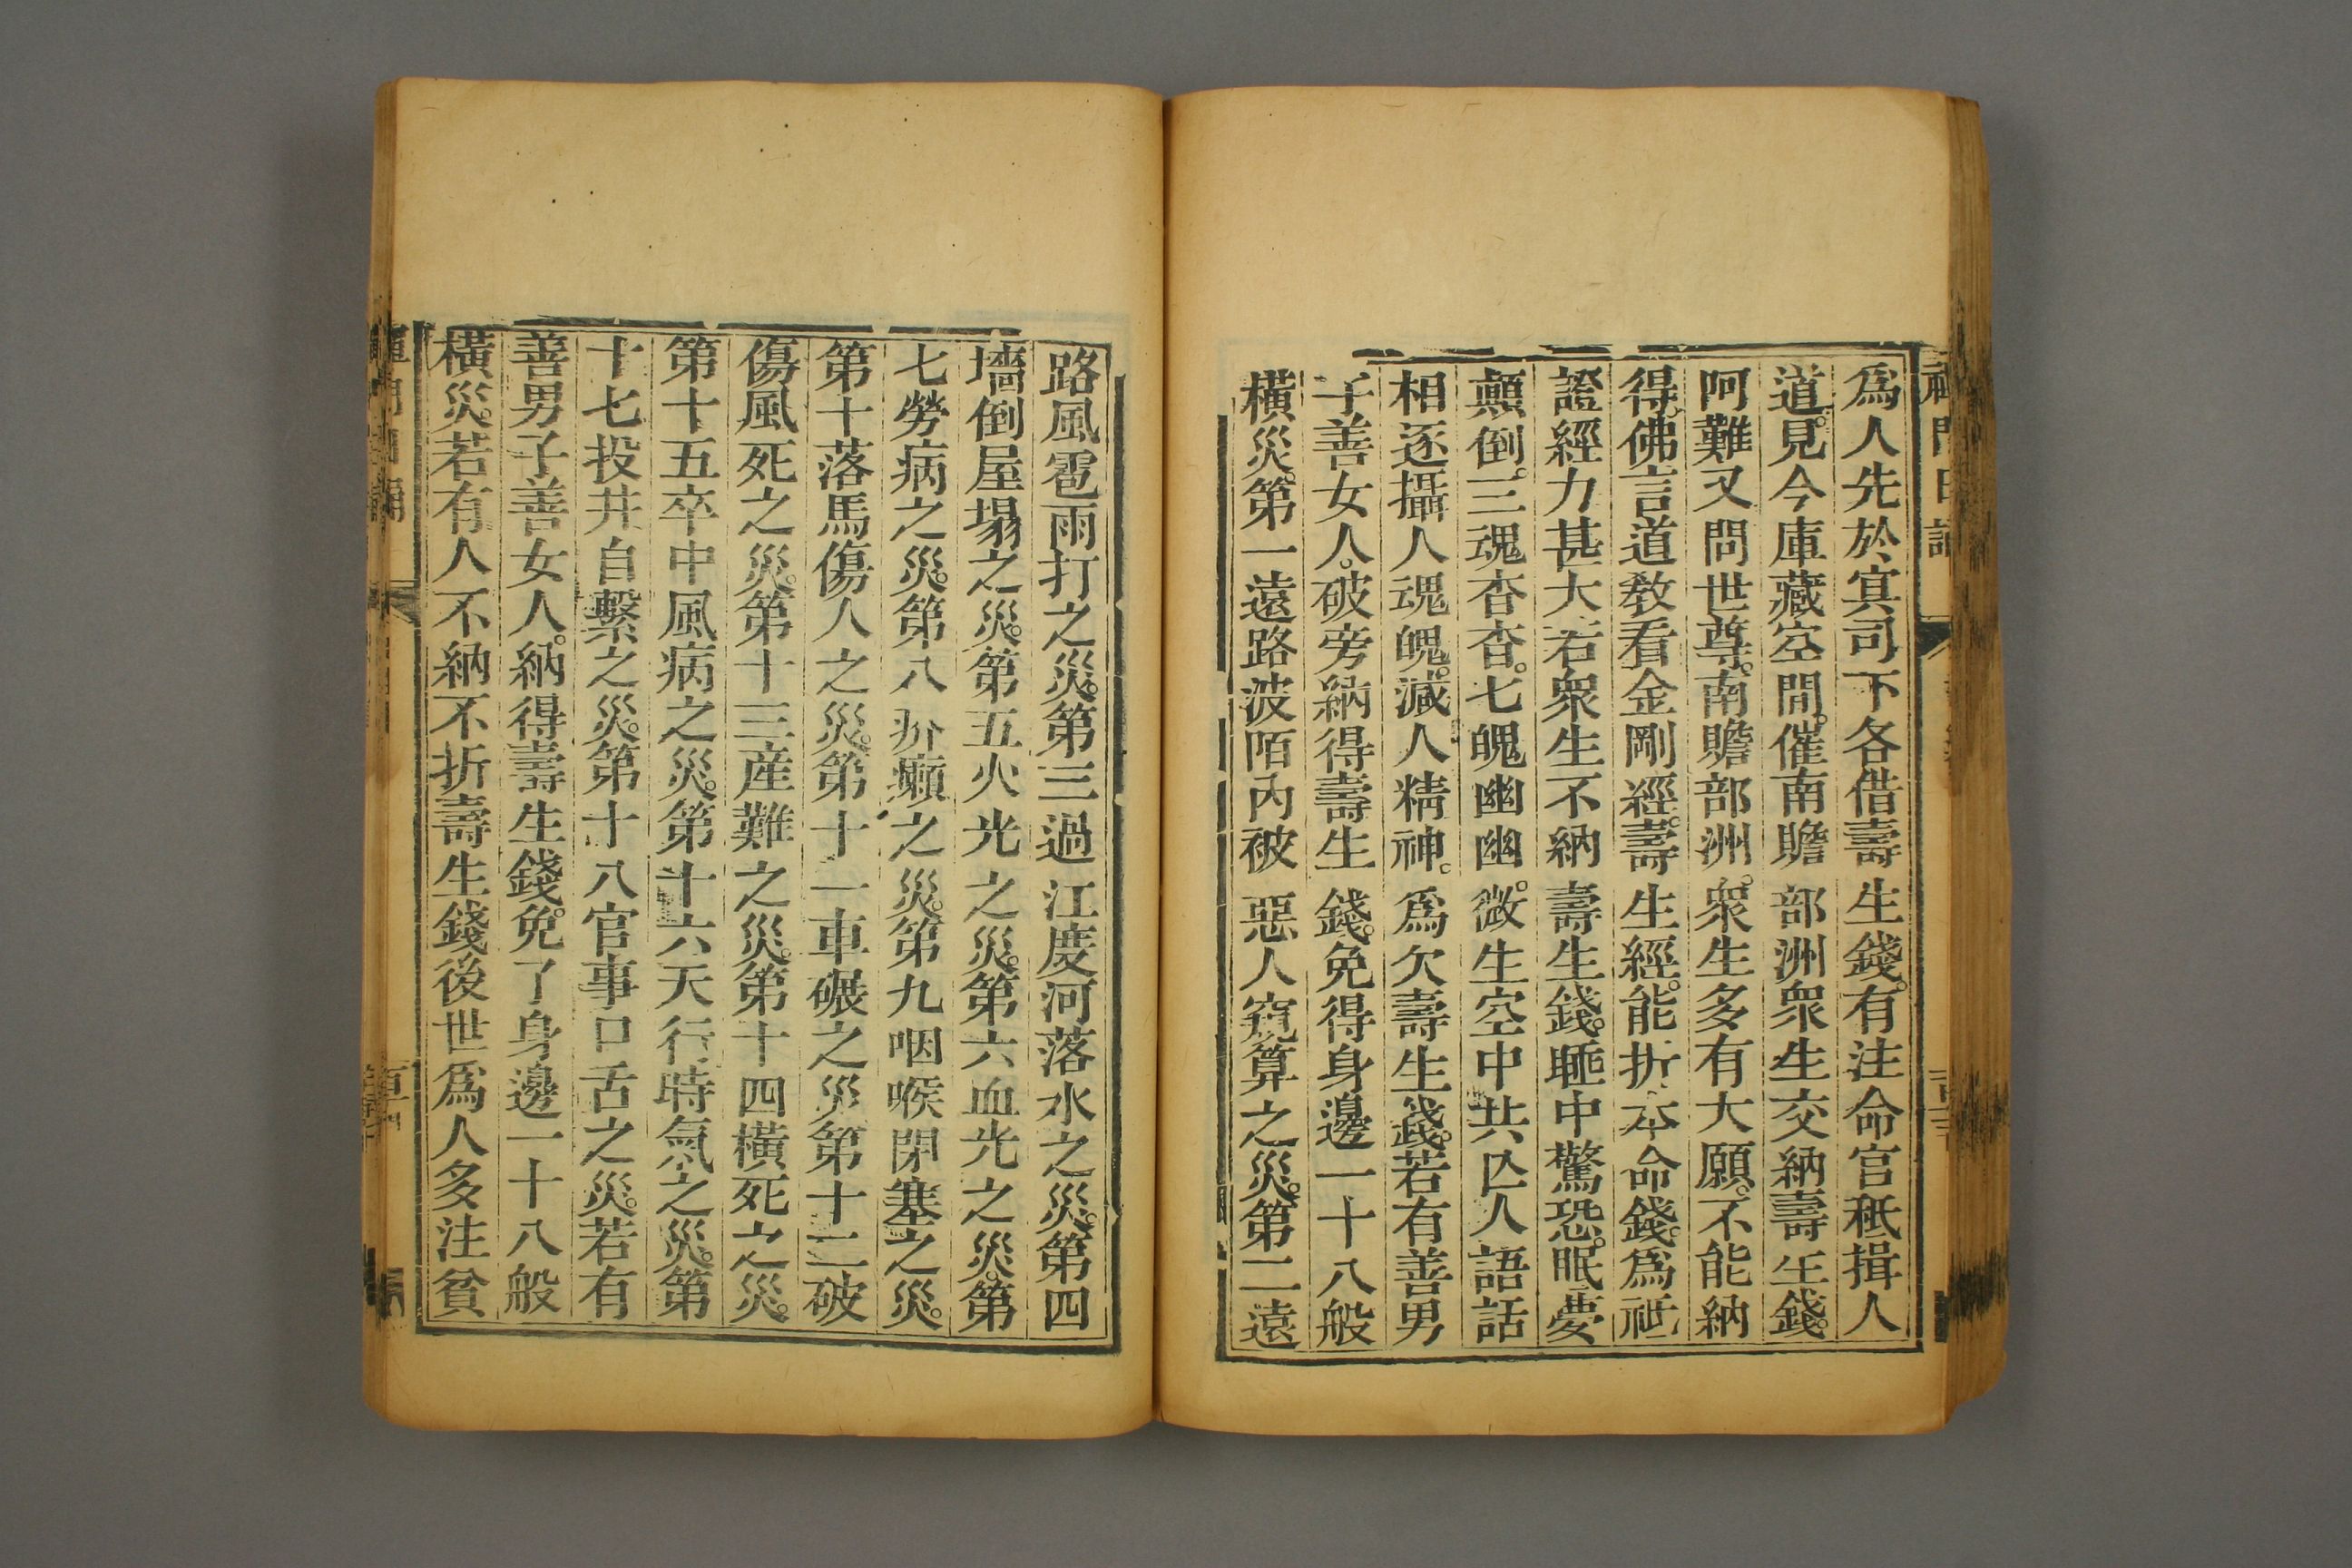 爲人先於㝠司下各借壽生錢。有注命官秪揖人
道。見今庫藏空閒。催南贍部洲衆生交納壽生錢。
阿難又問世尊。南贍部洲。衆生多有大願。不能納
得。佛言道教看金剛經。壽生經。能折本命錢。爲秪
證經力甚大若衆生不納壽生錢。睡中驚恐。眠夢
顛倒。三魂杳杳。七魄幽幽。微生空中共亾人語話
相逐攝人魂魄。減人精神。爲欠壽生錢。若有善男
子善女人。破旁納得壽生錢。免得身邊一十八般
橫災。第一遠路波陌內被惡人窺算之災。第二遠
路風雹雨打之災。第三過江度河落水之災。第四
墻倒屋塌之災。第五火光之災。第六血光之災。第
七勞病之災。第八疥癩之災。第九咽喉閉塞之災。
第十落馬傷人之災。第十一車碾之災第十二破
傷風死之災。第十三産難之災。第十四橫死之災。
第十五卒中風病之災。第十六天行時氣之災。第
十七投井自繫之災。第十八官事口舌之災。若有
善男子善女人。納得壽生錢。免了身邊一十八般
橫災。若有人不納不折壽生錢後世爲人多注貧